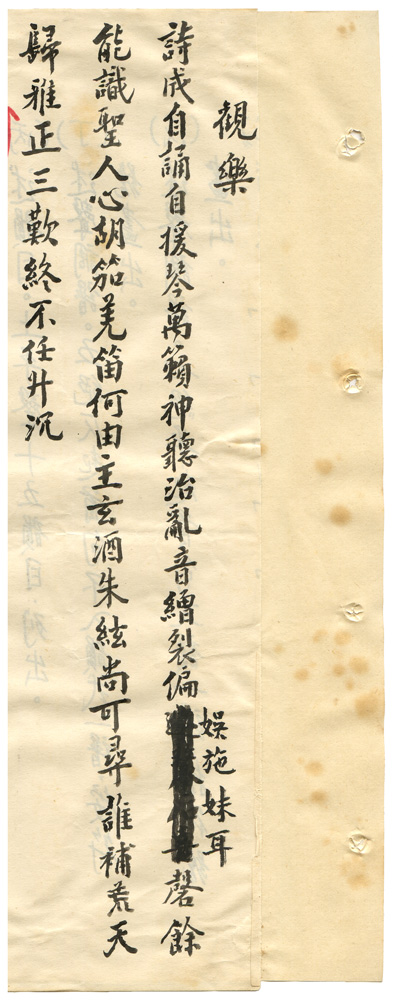 觀樂
詩成自誦自援琴萬籟神聽治亂音繒裂偏娛施妹耳磬餘
能識聖人心胡笳羌笛何由主玄酒朱絃尚可尋誰補荒天
歸雅正三歎終不任升沉